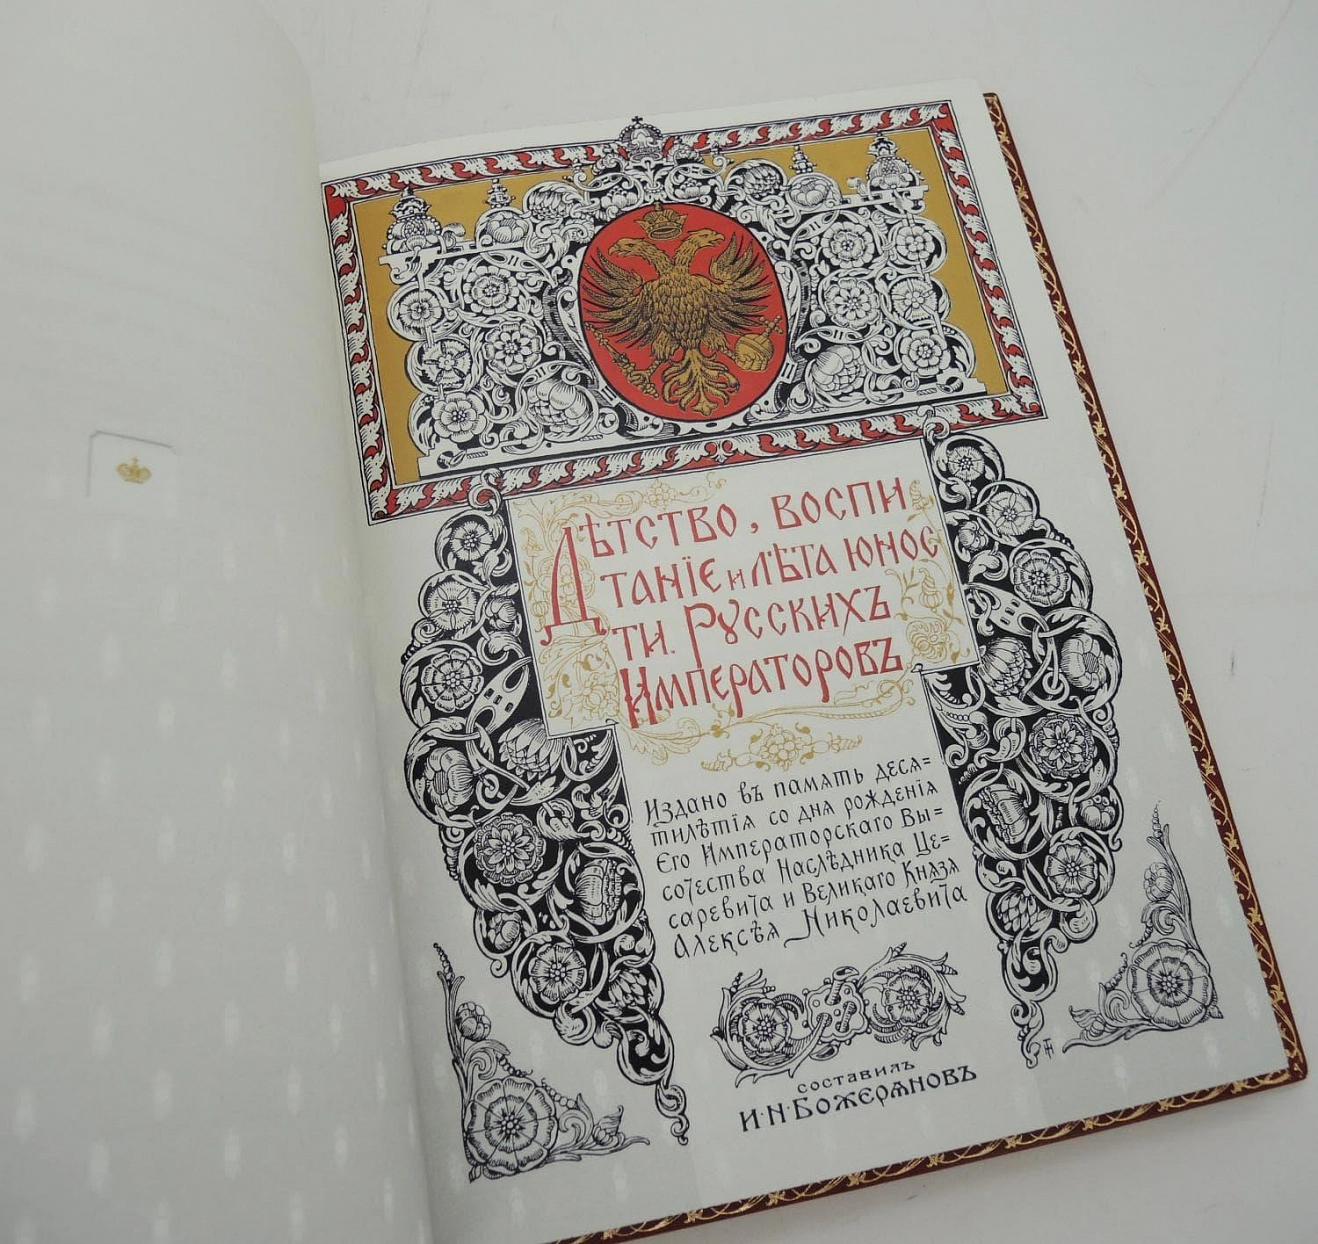 Дѣтство, воспи
танїе и лѣта юнос
ти. Рꙋсскихъ
Императоровъ
Издано въ память деся=
тилѣтїя со дня рожденїя
Єго Императорскаго Вы=
сочества Наслѣдника Це=
саревича и Великаго Князя
Алексѣя Николаевича
составилъ
И·Н·Божеряновъ